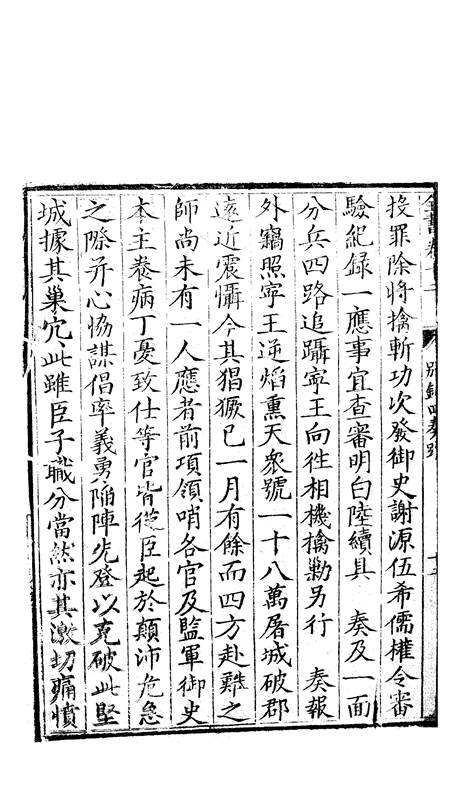 投罪除將擒斬功次發御史謝源伍希儒權令審
驗紀録一應事宜查審明白陸續具　奏及一面
分兵四路追躡寧王向徃相機擒勦另行　奏報
外竊照寧王逆焰熏天衆號一十八萬屠城破郡
遠近震懾今其猖獗已一月有餘而四方赴難之
師尚未有一人應者前項領哨各官及監軍御史
本主養病丁憂致仕等官皆從臣起於顛沛危急
之際并心恊謀倡率義勇陷陣先登以克破此堅
城據其巢穴此雖臣子職分當然亦其激切痛憤